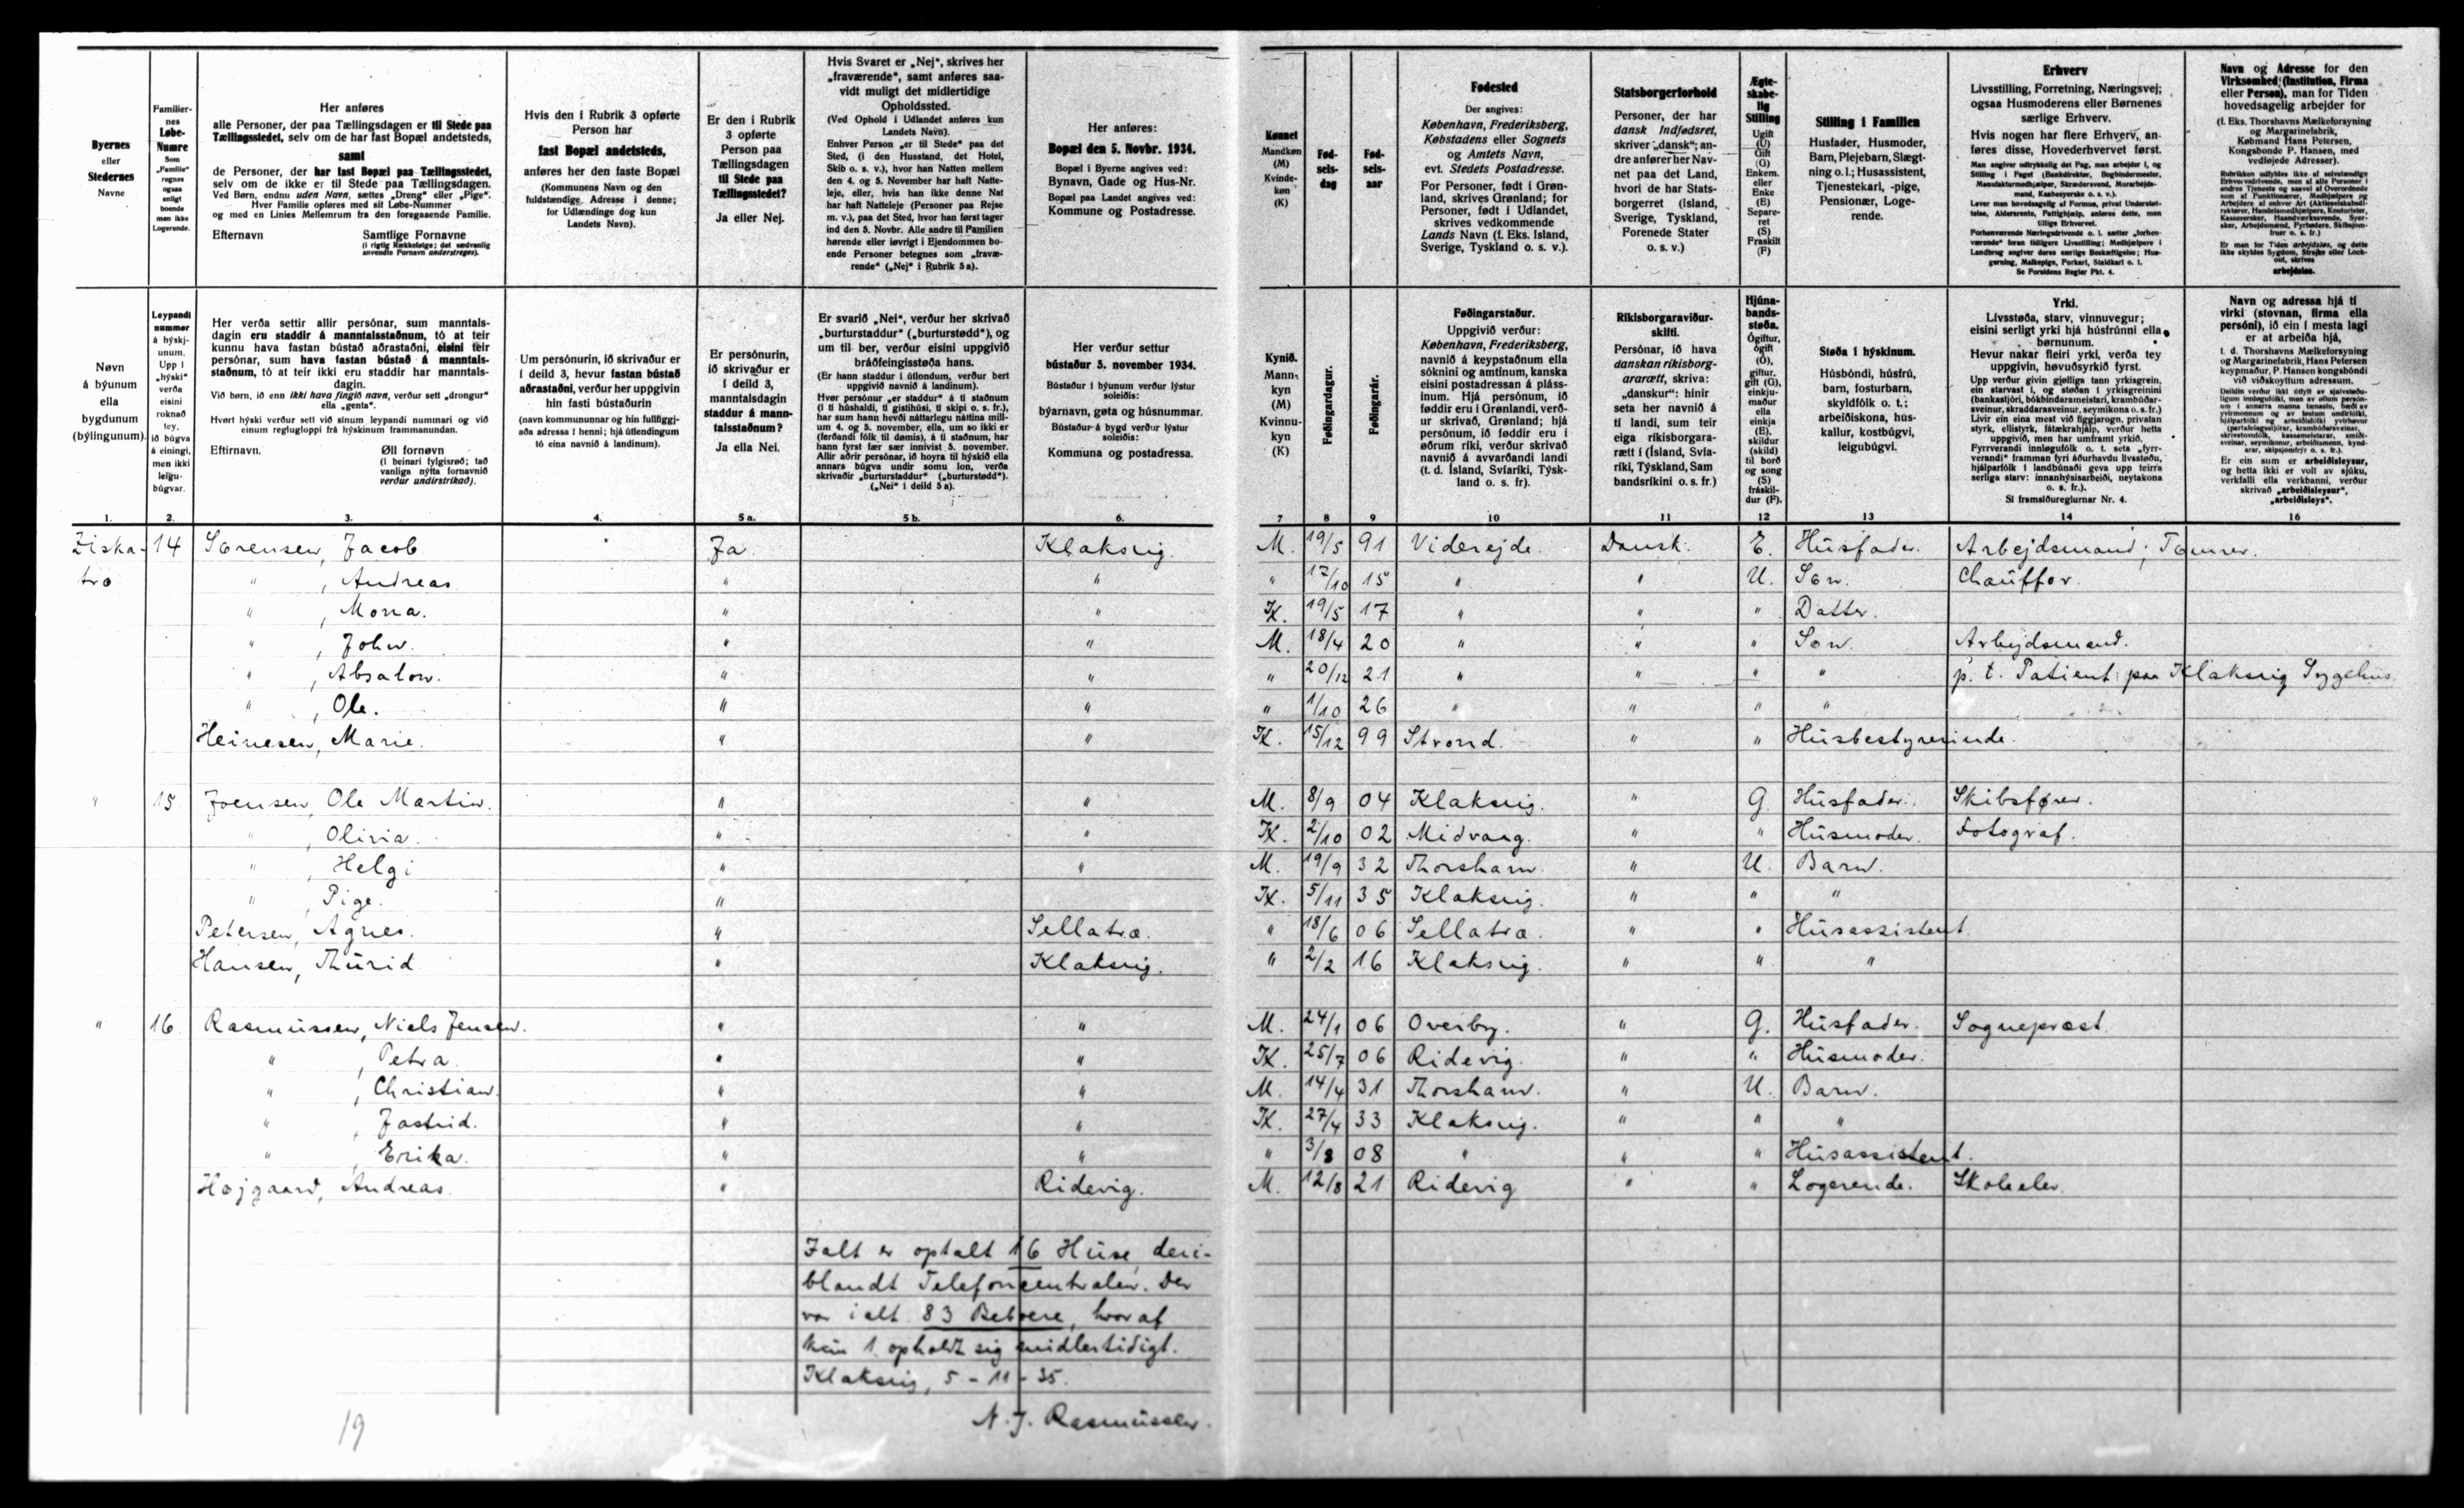 Byernes
eller
Stedernes
Navne
Familier-
nes
Løbe-
Numre
Som
„Familie"
regnes
ogsaa
enligt
boende
men ikke
Logerende.
Her anføres
alle Personer, der paa Tællingsdagen er til Stede paa
Tællingsstedet, selv om de har fast Bopæl andetsteds,
samt
de Personer, der har fast Bopæl paa Tællingsstedet,
selv om de ikke er til Stede paa Tællingsdagen.
Ved Børn, endnu uden Navn, sættes „Dreng" eller „Pige".
Hver Familie opføres med sit Løbe-Nummer
og med en Linies Mellemrum fra den foregaaende Familie.
Efternavn Samtlige Fornavne
(i rigtig Rækkefølge; det sædvanlig
anvendte Fornavn understreges).
Hvis den i Rubrik 3 opførte
Person har
fast Bopæl andetsteds,
anføres her den faste Bopæl
(Kommunens Navn og den
fuldstændige Adresse i denne;
for Udlændinge dog kun
Landets Navn).
Er den i Rubrik
3 opførte
Person paa
Tællingsdagen
til Stede paa
Tællingsstedet?
Ja eller Nej.
Hvis Svaret er „Nej", skrives her
„fraværende", samt anføres saa-
vidt muligt det midlertidige
Opholdssted.
(Ved Ophold i Udlandet anføres kun
Landets Navn).
Enhver Person „er til Stede" paa det
Sted, (i den Husstand, det Hotel,
Skib o. s. v.), hvor han Natten mellem
den 4. og 5. November har haft Natte-
leje, eller, hvis han ikke denne Nat
har haft Natteleje (Personer paa Rejse
m. v.), paa det Sted, hvor han først tager
ind den 5. Novbr. Alle andre til Familien
hørende eller iøvrigt i Ejendommen bo-
ende Personer betegnes som „fravæ-
rende" („Nej" i Rubrik 5 a).
Her anføres:
Bopæl den 5. Novbr. 1934.
Bopæl i Byerne angives ved:
Bynavn, Gade og Hus-Nr.
Bopæl paa Landet angives ved:
Kommune og Postadresse.
Kønnet
Mandkøn
(M)
Kvinde-
køn
(K)
Fød-
sels-
dag
Fød-
sels-
aar
Fødested
Der angives:
København, Frederiksberg,
Købstadens eller Sognets
og Amtets Navn,
evt. Stedets Postadresse.
For Personer, født i Grøn-
land, skrives Grønland; for
Personer, født i Udlandet,
skrives vedkommende
Lands Navn (f. Eks. Island,
Sverige, Tyskland o. s. v.).
Statsborgerforhold
Personer, der har
dansk Indfødsret,
skriver „dansk"; an-
dre anfører her Nav-
net paa det Land,
hvori de har Stats-
borgerret (Island,
Sverige, Tyskland,
Forenede Stater
o. s. v.)
Ægte-
skabe-
lig
Stilling
Ugift
(U)
Gift
(G)
Enkem.
eller
Enke
(E)
Separe-
ret
(S)
Fraskilt
(F)
Stilling i Familien
Husfader, Husmoder,
Barn, Plejebarn, Slægt-
ning o. l.; Husassistent,
Tjenestekarl, -pige,
Pensionær, Loge-
rende.
Erhverv
Livsstilling, Forretning, Næringsvej;
ogsaa Husmoderens eller Børnenes
særlige Erhverv.
Hvis nogen har flere Erhverv, an-
føres disse, Hovederhvervet først.
Man angiver udtrykkelig det Fag, man arbejder i, og
Stilling i Faget (Bankdirektør, Bogbindermester,
Manufakturmedhjælper, Skrædersvend, Murarbejds-
mand, Kasbesyerske o. s. v.).
Lever man hovedsagelig af Formue, privat Understøt-
telse, Aldersrente, Fattighjælp, anføres dette, men
tillige Erhvervet.
Forhenværende Næringsdrivende o. l. sætter „forhen-
værende" foran tidligere Livsstilling; Medhjælpere i
Landbrug angiver deres særlige Beskæftigelse; Hus-
gerning, Malkepige, Forkarl, Staldkarl o. l.
Se Forsidens Regler Pkt. 4.
Navn og Adresse for den
Virksomhed, (Institution, Firma
eller Person), man for Tiden
hovedsagelig arbejder for
(f. Eks. Thorshavns Mælkeforsyning
og Margarinefabrik,
Købmand Hans Petersen,
Kongsbonde P. Hansen, med
vedføjede Adresser).
Er man for Tiden arbejdsløs, og dette
ikke skyldes Sygdom, Strejke eller Lock-
out, skrives
arbejdsløs.
Nøvn
á býunum
ella
bygdunum
(býlingunum).
Leypandi
nummer
á hýskj-
unum.
Upp í
„hýski"
verða
eisini
roknað
tey,
ið búgva
á einingi,
men ikki
leigu-
búgvar.
Her verða settir allir persónar, sum manntals-
dagin eru staddir á manntalsstaðnum, tó at teir
kunnu hava fastan bústað aðrastaðni, eisini teir
persónar, sum hava fastan bústað á manntals-
staðnum, tó at teir ikki eru staddir har manntals-
dagin.
Við børn, ið enn ikki hava fingið navn, verður sett „drongur"
ella „genta".
Hvørt hýski verður sett við sínum leypandi nummari og við
einum reglugloppi frá hýskinum frammanundan.
Eftirnavn. Øll fornøvn
(í beinari fylgisrøð; tað
vanliga nýtta fornavnið
verður undirstrikað).
Um persónurin, ið skrivaður er
í deild 3, hevur fastan bústað
aðrastaðni, verður her uppgivin
hin fasti bústaðurin
(navn kommununnar og hin fullfiggj-
aða adressa í henni; hjá útlendingum
tó eina navnið á landinum).
Er persónurin,
ið skrivaður er
í deild 3,
manntalsdagin
staddur á mann-
talsstaðnum?
Ja ella Nei.
Er svarið „Nei", verður her skrivað
„burturstaddur" („burturstødd"), og
um til ber, verður eisini uppgivið
bráðfeingisstøða hans.
(Er hann staddur í útlondum, verður bert
uppgivið navnið á landinum).
Her verður settur
bústaður 5. november 1934.
Bústaður í býunum verður lýstur
soleiðis:
býarnavn, gøta og húsnummar.
Bústaður á bygd verður lýstur
soleiðis:
Kommuna og postadressa.
Kynið.
Mann-
kyn
(M)
Kvinnu-
kyn
(K)
Føðingardagur.
Føðingarár.
Føðingarstaður.
Uppgivið verður:
København, Frederiksberg,
navnið á keypstaðnum ella
sóknini og amtinum, kanska
eisini postadressan á pláss-
inum. Hjá persónum, ið
føddir eru í Grønlandi, verð-
ur skrivað, Grønland; hjá
persónum, ið føddir eru í
øðrum ríki, verður skrivað
navnið á avvarðandi landi
(t. d. Ísland, Svíaríki, Týsk-
land o. s. fr).
Ríkisborgaraviður-
skifti.
Persónar, ið hava
danskan ríkisborg-
ararætt, skriva:
„danskur"; hinir
seta her navnið á
tí landi, sum teir
eiga ríkisborgara-
rætt í (Ísland, Svía-
ríki, Týskland, Sam
bandsríkini o. s. fr.)
Hjúna-
bands-
støða.
Ógiftur,
ógift
(Ó),
giftur,
gift (G),
einkju-
maður
ella
einkja
(E),
skildur
(skild)
til borð
og song
(S)
fráskil-
dur (F).
Støða í hýskinum.
Húsbóndi, húsfrú,
barn, fosturbarn,
skyldfólk o. t.;
arbeiðiskona, hús-
kallur, kostbúgvi,
leigubúgvi.
Yrki.
Livsstøða, starv, vinnuvegur;
eisini serligt yrki hjá húsfrúnni ella
børnunum.
Hevur nakar fleiri yrki, verða tey
uppgivin, høvuðsyrkið fyrst.
Sí framsíðureglurnar Nr. 4.
Navn og adressa hjá tí
virki (stovnan, firma ella
persóni), ið ein í mesta lagi
er at arbeiða hjá,
t. d. Thorshavns Mælkeforsyning
og Margarinefabrik, Hans Petersen
keypmaður, P. Hansen kongsbóndi
við viðskoyttum adressum.
Er ein sum er arbeiðisleysur,
og hetta ikki er volt av sjúku,
verkfalli ella verkbanni, verður
skrivað „arbeiðisleysur",
„arbeiðisleys".
1. 2. 3. 4. 5 a. 5 b. 6. 7 8 9 10 11 12 13 14 16
Ziska- 14 Sørensen, Jacob. Ja. Klaksvig. M. 19/5 91 Viderejde. Dansk. E. Husfader. Arbejdsmand; Tømrer.
trø " , Andreas " " " 17/10 15 " " U. Søn. Chauffør.
" , Mona. " " K. 19/5 17 " " " Datter.
" , John. " " M. 18/4 20 " " " Søn. Arbejdsmand.
" , Absalon. " " " 20/12 21 " " " " p. t. Patient paa Klaksvig Sygehus.
" , Ole. " " " 1/10 26 " " " "
Heinesen, Marie. " " K. 15/12 99 Strond. " " Husbestyrerinde.
" 15 Joensen, Ole Martin. " " M. 8/9 04 Klaksvig. " G. Husfader. Skibsfører.
" , Olivia. " " K. 2/10 02 Midvaag. " " Husmoder. Fotograf.
" , Helgi " " M. 19/9 32 Thorshavn. " U. Barn.
" , Pige. " K. 5/11 35 Klaksvig. " " "
Petersen, Agnes. " Sellatrø. " 18/6 06 Sellatrø. " " Husassistent.
Hansen, Thurid " Klaksvig. " 2/2 16 Klaksvig. " " "
" 16. Rasmussen, Niels Jensen. " " M. 24/1 06 Overby. " G. Husfader. Sognepræst.
" , Petra. " " K. 25/7 06 Ridevig. " " Husmoder.
" , Christian. " " M. 14/4 31 Thorshavn. " U. Barn.
" , Jastrid. " " K. 27/4 33 Klaksvig. " " "
" , Erika. " " " 3/8 08 " " " Husassistent.
Højgaard, Andreas. " Ridevig. M. 12/8 21 Ridevig " " Logerende. Skoleelev.
Ialt er optalt 16 Huse, deri-
blandt Telefoncentralen. Der
var ialt 83 Beboere, hvoraf
kun 1 opholdt sig midlertidigt.
Klaksvig, 5 - 11 - 35.
N. J. Rasmussen.
19